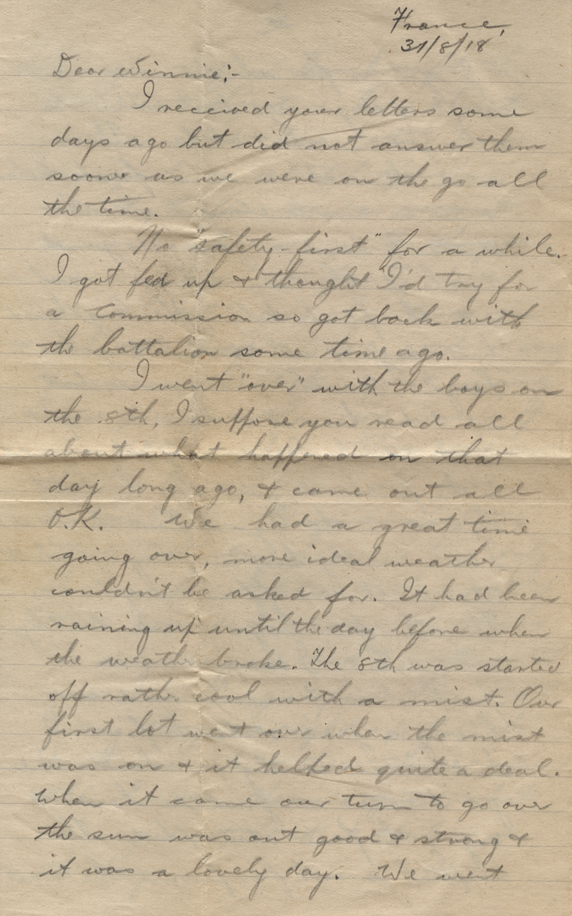 France,
31/8/18
Dear Winnie:-
I received your letters some
days ago but did not answer them
sooner as we were on the go all
the time.
No "safety-first" for a while.
I got fed up & thought I'd try for
a Commission so got back with
the battalion some time ago.
I went "over" with the boys on
the 8th, I suppose you read all
about what happened on that
day long ago, & came out all
O.K. We had a great time
going over, more ideal weather
couldn't be asked for. It had been
raining up until the day before when
the weather broke. The 8th was started
off rather cool with a mist. Our
first lot went over when the mist
was on & it helped quite a deal.
When it came our turn to go over
the sun was out good & strong &
it was a lovely day. We went